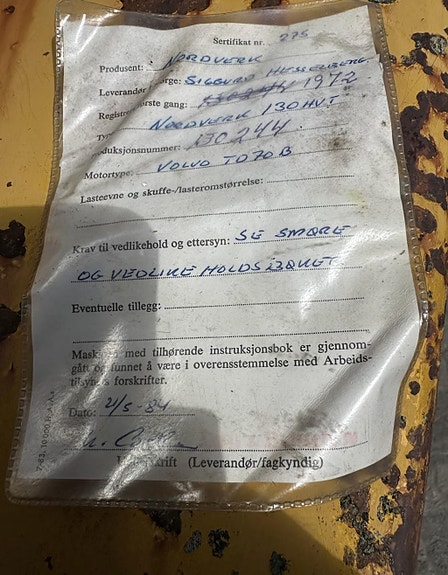 Sertifikat nr. 275
Produsent: NORDVERK
Leverandør i Norge: SIGGURD HESSENBERG
Registr. første gang: 1972
Type: NORDVERK 130HVT
Produksjonsnummer: 130244
Motortype: VOLVO TD70B
Lasteevne og skuffe-/lasteromstørrelse:
Krav til vedlikehold og ettersyn: SE SMØRE
OG VEDLIKEHOLDSBOKET
Eventuelle tillegg:
Maskinen med tilhørende instruksjonsbok er gjennom-
gått og funnet å være i overensstemmelse med Arbeids-
tilsynets forskrifter.
Dato: 2/5-84
Underskrift (Leverandør/fagkyndig)